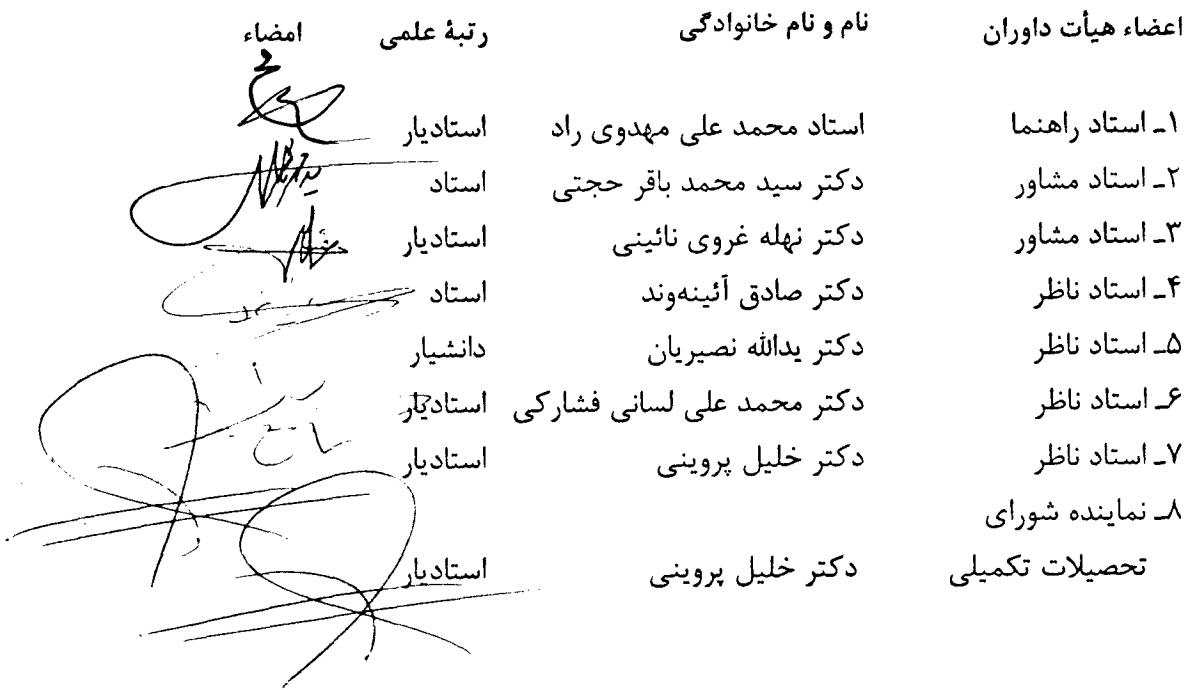 اعضاء هیأت داوران نام و نام خانوادگی رتبهٔ علمی امضاء
۱ـ استاد راهنما استاد محمد علی مهدوی راد استادیار
۲ـ استاد مشاور دکتر سید محمد باقر حجتی استاد
۳ـ استاد مشاور دکتر نهله غروی نائینی استادیار
۴ـ استاد ناظر دکتر صادق آئینه‌وند استاد
۵ـ استاد ناظر دکتر یدالله نصیریان دانشیار
۶ـ استاد ناظر دکتر محمد علی لسانی فشارکی استادیار
۷ـ استاد ناظر دکتر خلیل پروینی استادیار
۸ـ نماینده شورای
تحصیلات تکمیلی دکتر خلیل پروینی استادیار